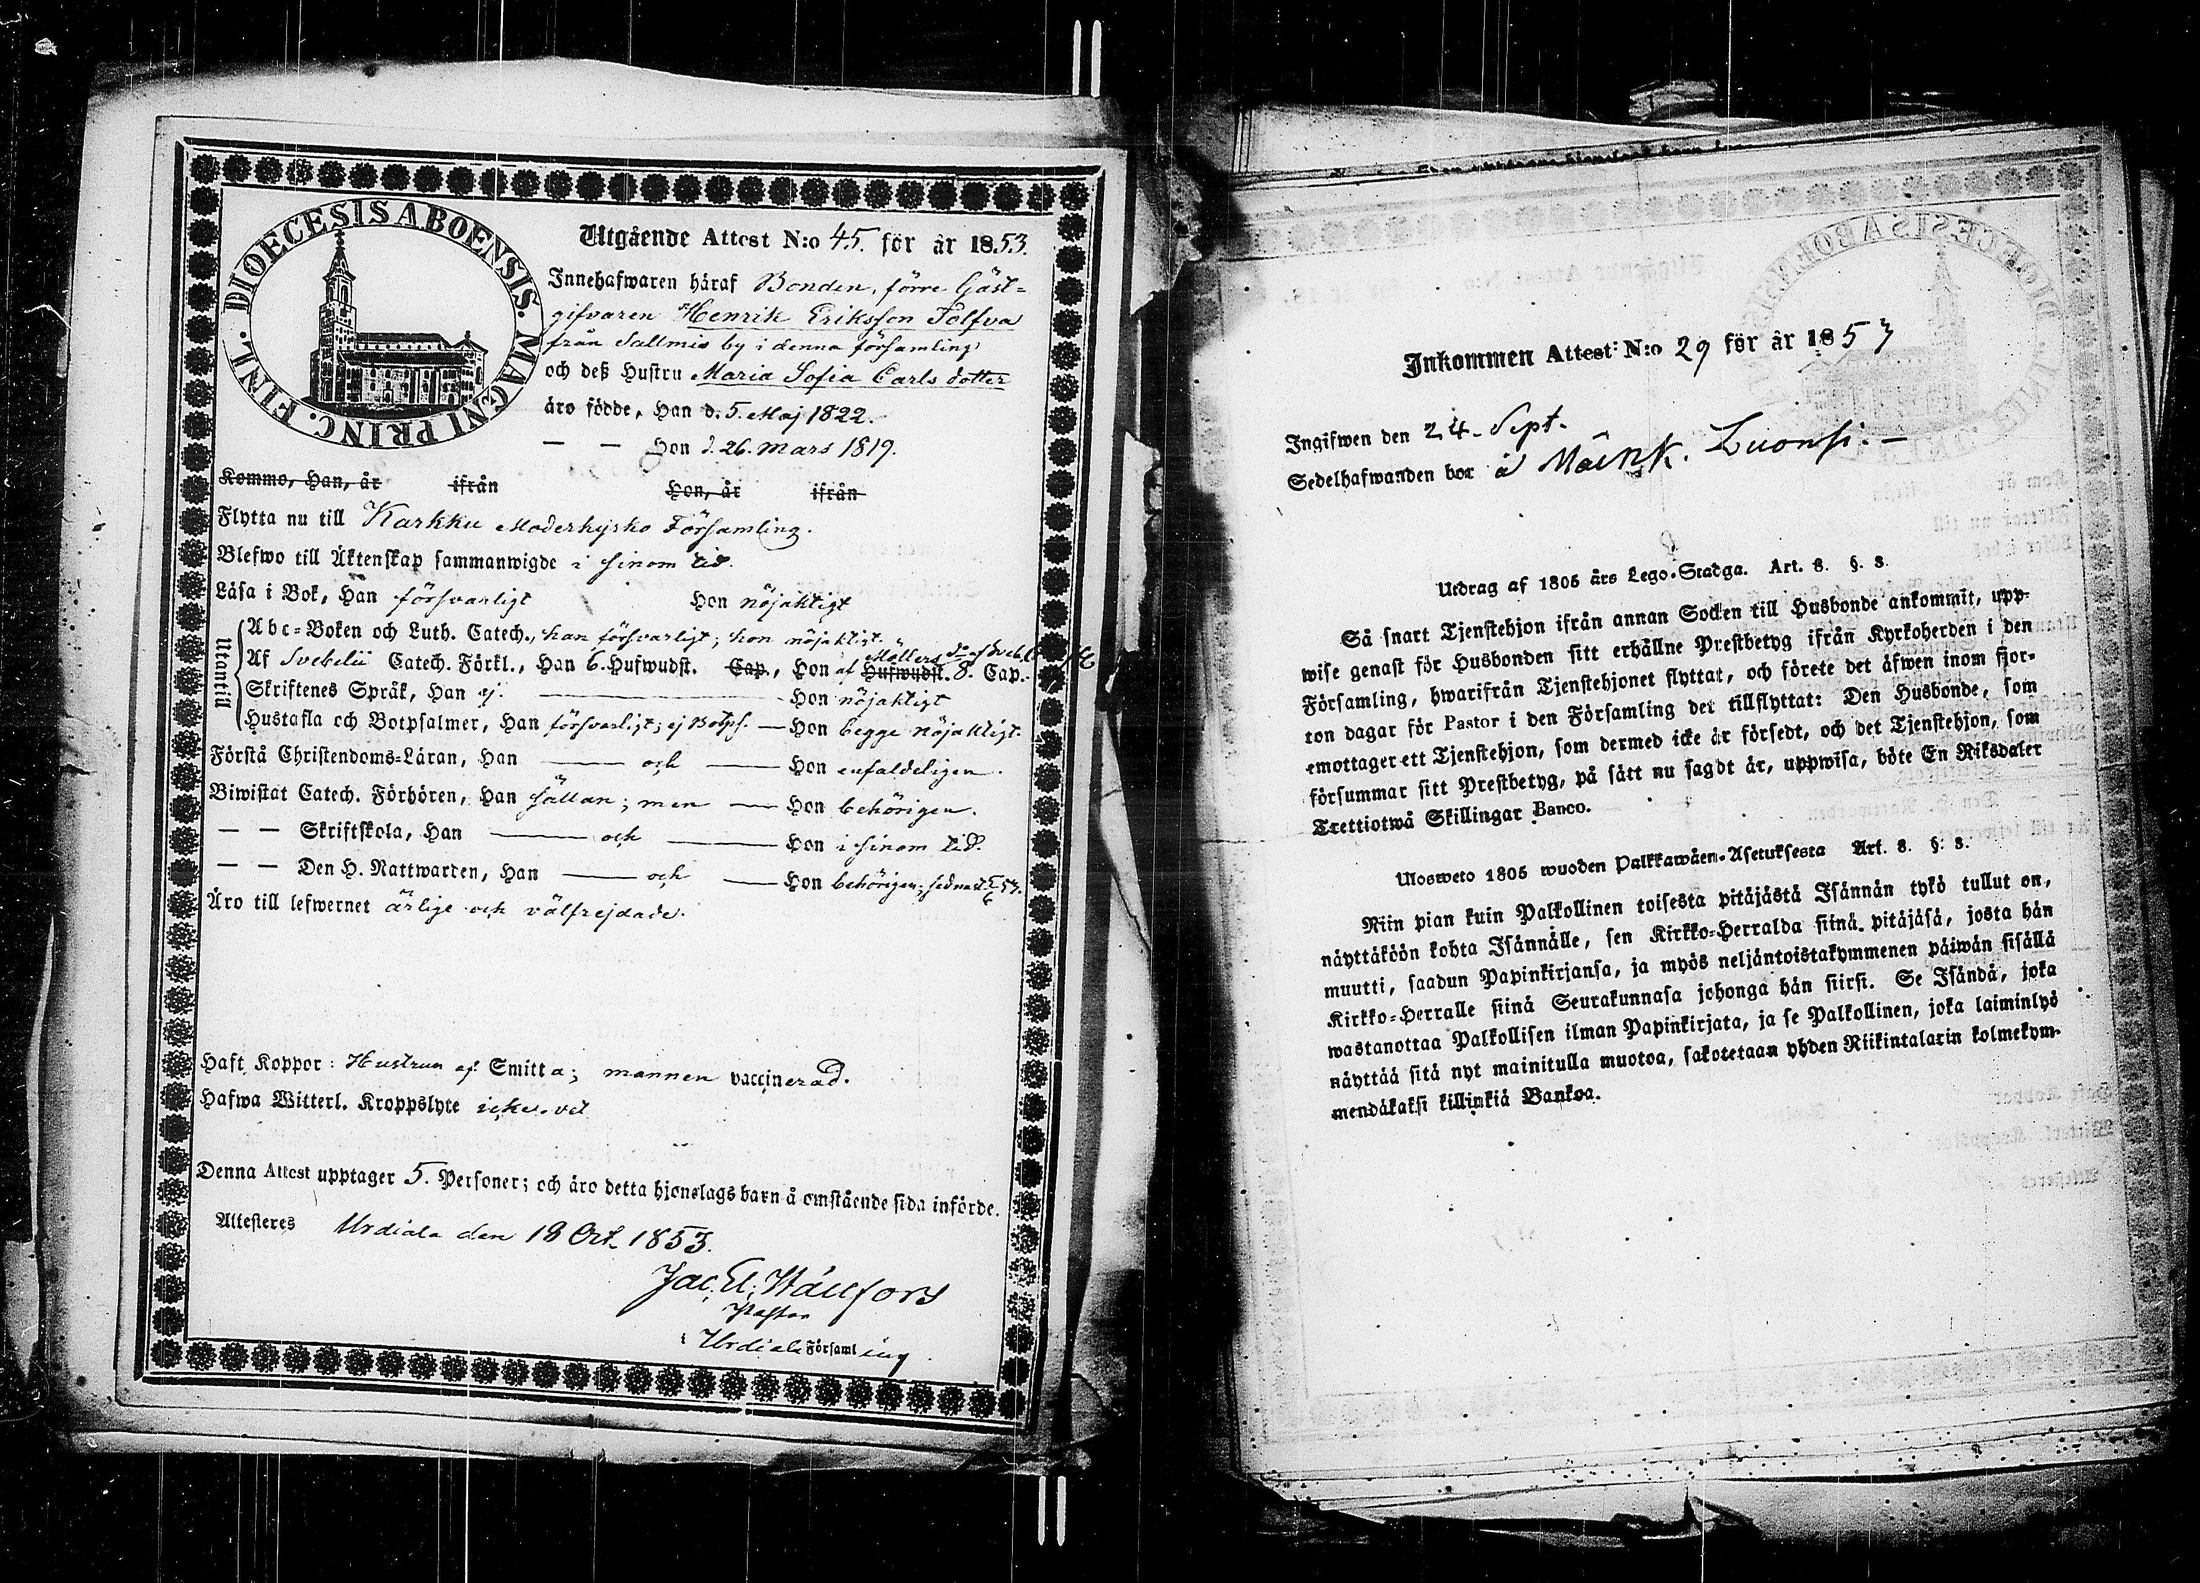 DIOECESIS ABOENSIS. MAGNI PRINC. FINL.
Utgående Attest N:o 45. för år 1853.
Innehafwaren häraf Bonden, förre Gäst-
gifvaren Henrik Eriksson Tolfva
från Sallmis by i denna församling
och deß Hustru Maria Sofia Carlsdotter
äro födde, Han d. 5. Maj 1822.
— — Hon d. 26. Mars 1819.
Kommo, Han, år ifrån Hon, år ifrån
Flytta nu till Karkku Moderkyrko Församling.
Blefwo till Äktenskap sammanwigde i sinom tid.
Läsa i Bok, Han försvarligt Hon nöjaktigt
Utantill
Abc-Boken och Luth. Catech., han försvarligt; hon nöjaktigt.
Af Svebelii Catech. Förkl., Han 6. Hufwudst. Cap., Hon af Möllers Hufwudst. 8. Cap.
Skriftenes Språk, Han ej. — Hon nöjaktigt
Hustafla och Botpsalmer, Han försvarligt; ej Botps. — Hon begge nöjaktigt.
Förstå Christendoms-Läran, Han — och — Hon enfaldeligen.
Biwistat Catech. Förhören, Han sällan; men — Hon behörigen.
— — Skriftskola, Han — och — Hon i sinom tid.
— — Den H. Nattwarden, Han — och — Hon behörigen; sednast 53.
Äro till lefwernet ärlige och välfrejdade.
Haft Koppor: Hustrun af Smitta; mannen vaccinerad.
Hafwa Witterl. Kroppslyte icke. vet
Denna Attest upptager 5. Personer; och äro detta hjonelags barn å omstående sida införde.
Attesteres Urdiala den 18 Oct. 1853.
Jac. El. Hällfors
Pastor
i Urdiala Församling
Inkommen Attest N:o 29 för år 1853
Ingifwen den 24. Sept.
Sedelhafwanden bor å Mäenk. Luonsi. —
Utdrag af 1805 års Lego-Stadga. Art. 8. §. 3.
Så snart Tjenstehjon ifrån annan Socken till Husbonde ankommit, upp-
wise genast för Husbonden sitt erhållne Prestbetyg ifrån Kyrkoherden i den
Församling, hwarifrån Tjenstehjonet flyttat, och förete det äfwen inom fjor-
ton dagar för Pastor i den Församling det tillflyttat: Den Husbonde, som
emottager ett Tjenstehjon, som dermed icke är försedt, och det Tjenstehjon, som
försummar sitt Prestbetyg, på sätt nu sagdt är, uppwisa, böte En Riksdaler
Trettiotwå Skillingar Banco.
Ulosweto 1805 wuoden Palkkawäen-Asetuksesta Art. 8. §: 3.
Niin pian kuin Palkollinen toisesta pitäjästä Isännän tykö tullut on,
näyttäköön kohta Isännälle, sen Kirkko-Herralda siinä pitäjäsä, josta hän
muutti, saadun Papinkirjansa, ja myös neljäntoistakymmenen päiwän sisällä
Kirkko-Herralle siinä Seurakunnasa johonga hän siirsi. Se Isändä, joka
wastanottaa Palkollisen ilman Papinkirjata, ja se Palkollinen, joka laiminlyö
näyttää sitä nyt mainitulla muotoa, sakotetaan yhden Riikintalarin kolmekym-
mendäkaksi killinkiä Bankoa.